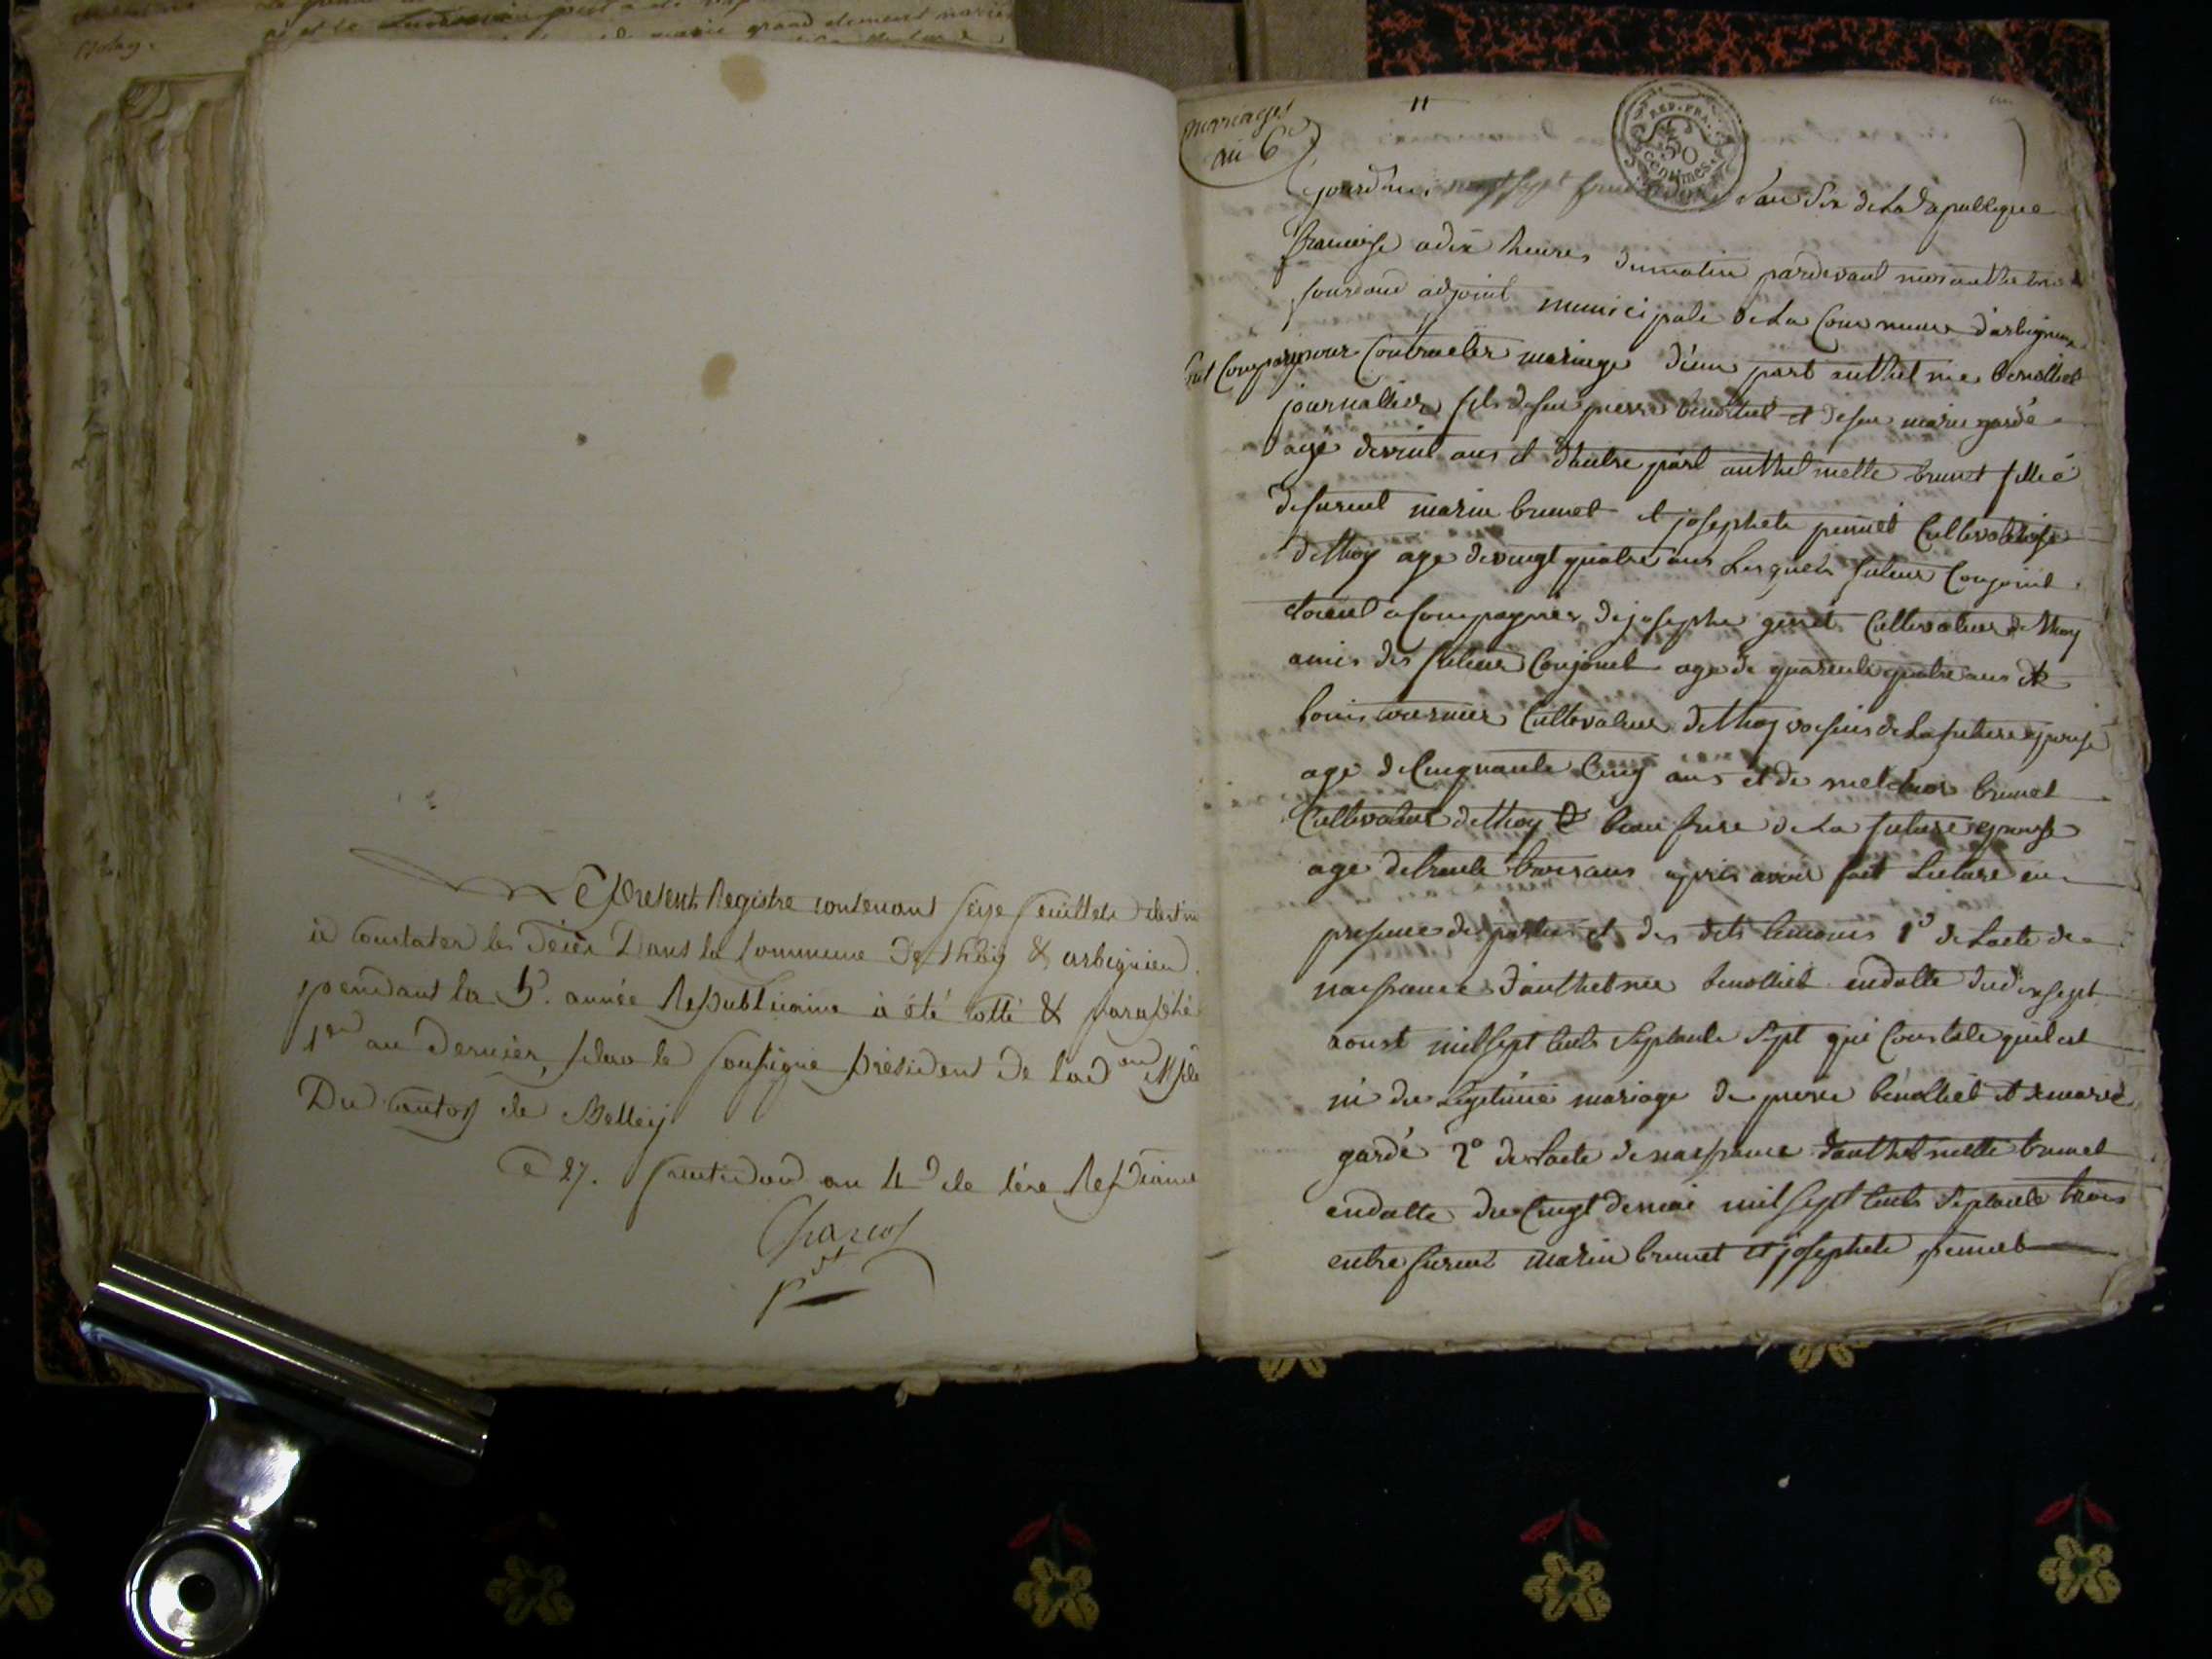 Le present Registre contenant seize feuillets destiné
à constater les Décès Dans la Commune De thoy & arbignieu
pendant la 5e. année Republicaine à été cotté & paraphé
1er au Dernier, par le soussigné président de lad on Mple
Du canton de Belley
Ce 27. fructidor an 4e de l'ère Repcaine
Charcot
pdt
mariages
an 6e
REP. FRA.
50
CENTIMES
Cejourd'hui vingt sept l'an six de La Republique
francaise a dix heures du matin pardevant nous anthelme
adjoint municipale de La Commune d'arbignieu
sont Comparu pour Contracter mariage d'une part anthelme benolliet
journallier fils de feu pierre benolliet et de feu marie gardé
agé de vint ans et d'autre part anthelmette brunet fillie
de furent marin brunet et josephete pennet Cultivatrice
de thoy age de vingt quatre ans Lesquels futeur Conjoint
etoient acompagnés de josephe genet Cultivateur de thoy
amis des futeur Conjoint age de quarente quatre ans et
louis Cultivateur de thoy voesins de La future epouse
age de Cinquante Cinq ans et de melchior brunet
Cultivateur de thoy & beau frere de La future epouse
age de trente trois ans apres avoir fait Lecture en
presence des parties et des dits temoins 1o de Lacte de
naissance d'anthelme benolliet en datte du dix sept
aoust mil sept cents septante sept qui Constate quil est
né du Legitime mariage de pierre benolliet et de marie
gardé 2o de Lacte de naissance d'anthelmette brunet
en datte du vingt de mai mil sept cents septante trois
entre furent marin brunet et josephete pennet